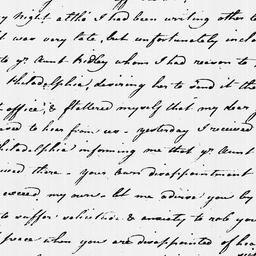 y night altho I had been writing other le
t was very late, but unfortunately incl
to yr. Aunt Ridley whom I had reason to
Philadelphia, desiring her to send it the
t office, & flattered myself that my dear
ved to hear from us - yesterday I received
hiladelphia informing me that yr Aunt
ived there - your own disappointment
exceed my own - let me advise you by
to suffer solicitude & anxiety to rob you
f peace when you are disappointed of hea